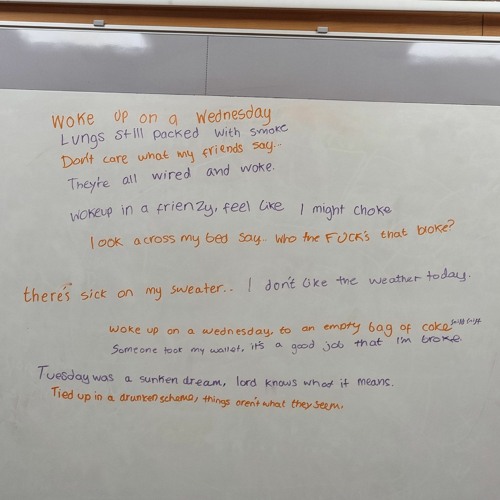 Woke up on a Wednesday
Lungs still packed with smoke
Don't care what my friends say...
They're all wired and woke.
wokeup in a frienzy, feel like I might choke
look across my bed say.. who the FUCK's that bloke?
there's sick on my sweater.. I don't like the weather today.
woke up on a wednesday, to an empty bag of coke sniff sniff
Someone took my wallet, it's a good job that I'm broke.
Tuesday was a sunken dream, lord knows what it means.
Tied up in a drunken scheme, things aren't what they seem.